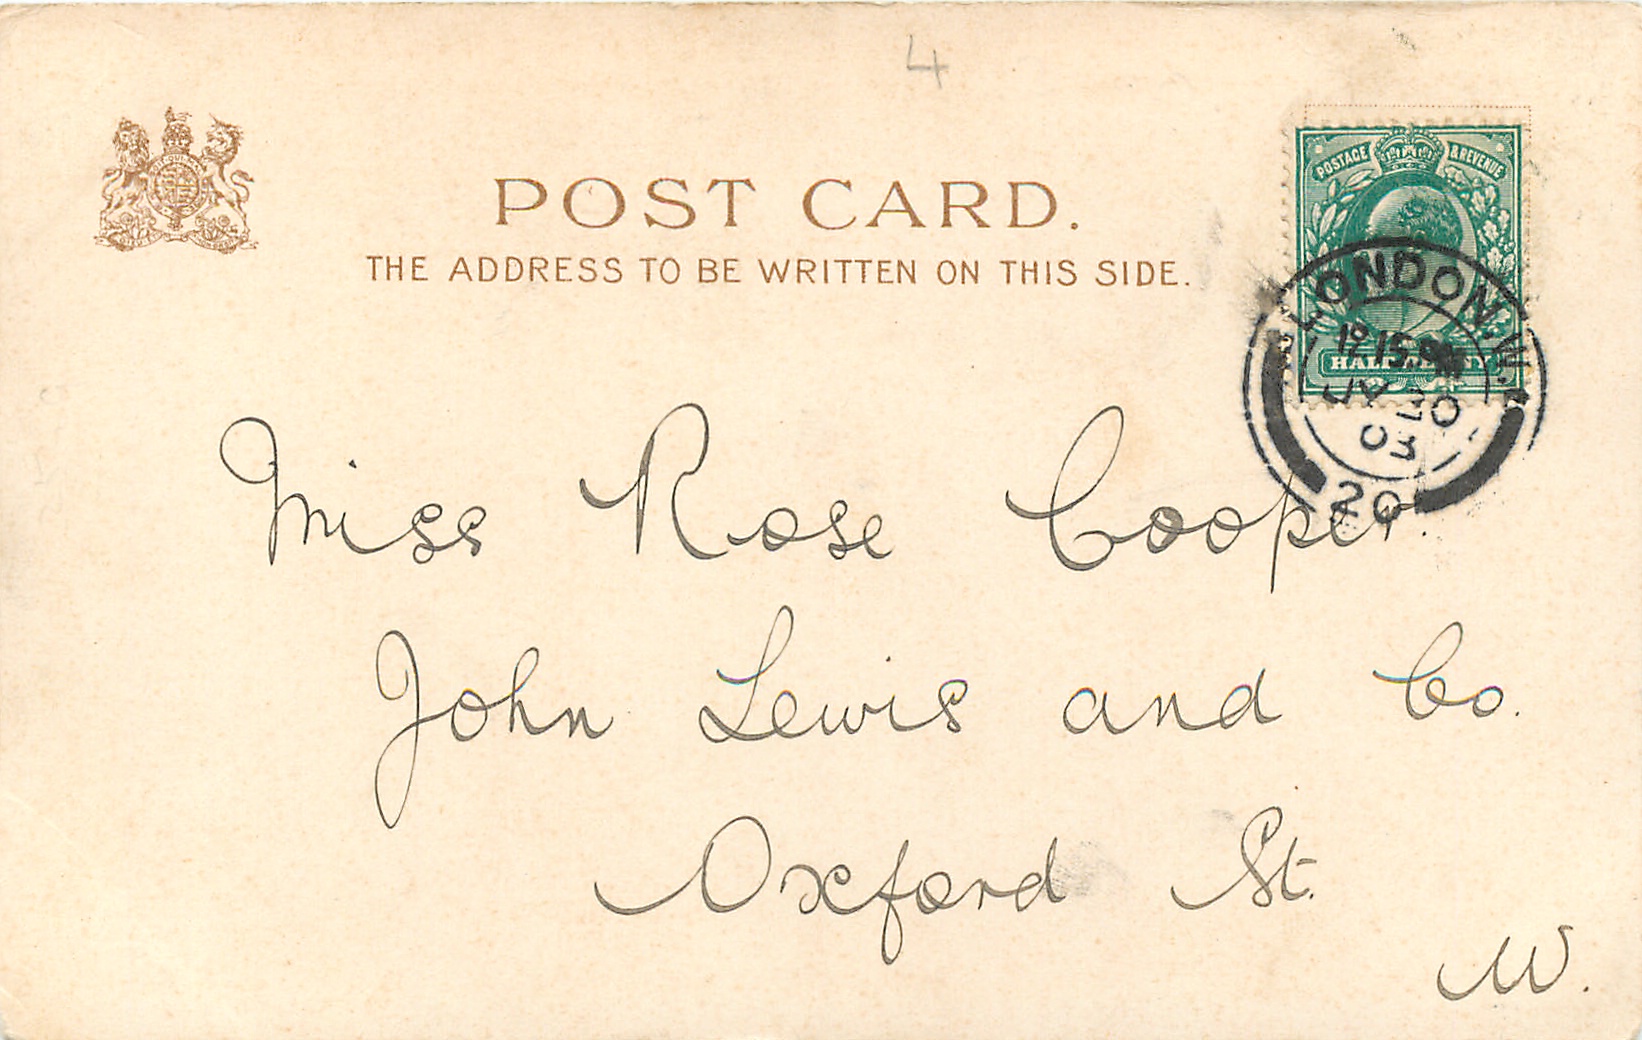 4
POST CARD.
THE ADDRESS TO BE WRITTEN ON THIS SIDE.
POSTAGE & REVENUE
HALFPENNY
LONDON. W.
JY 30
03
20
Miss Rose Cooper.
John Lewis and Co.
Oxford St.
W.